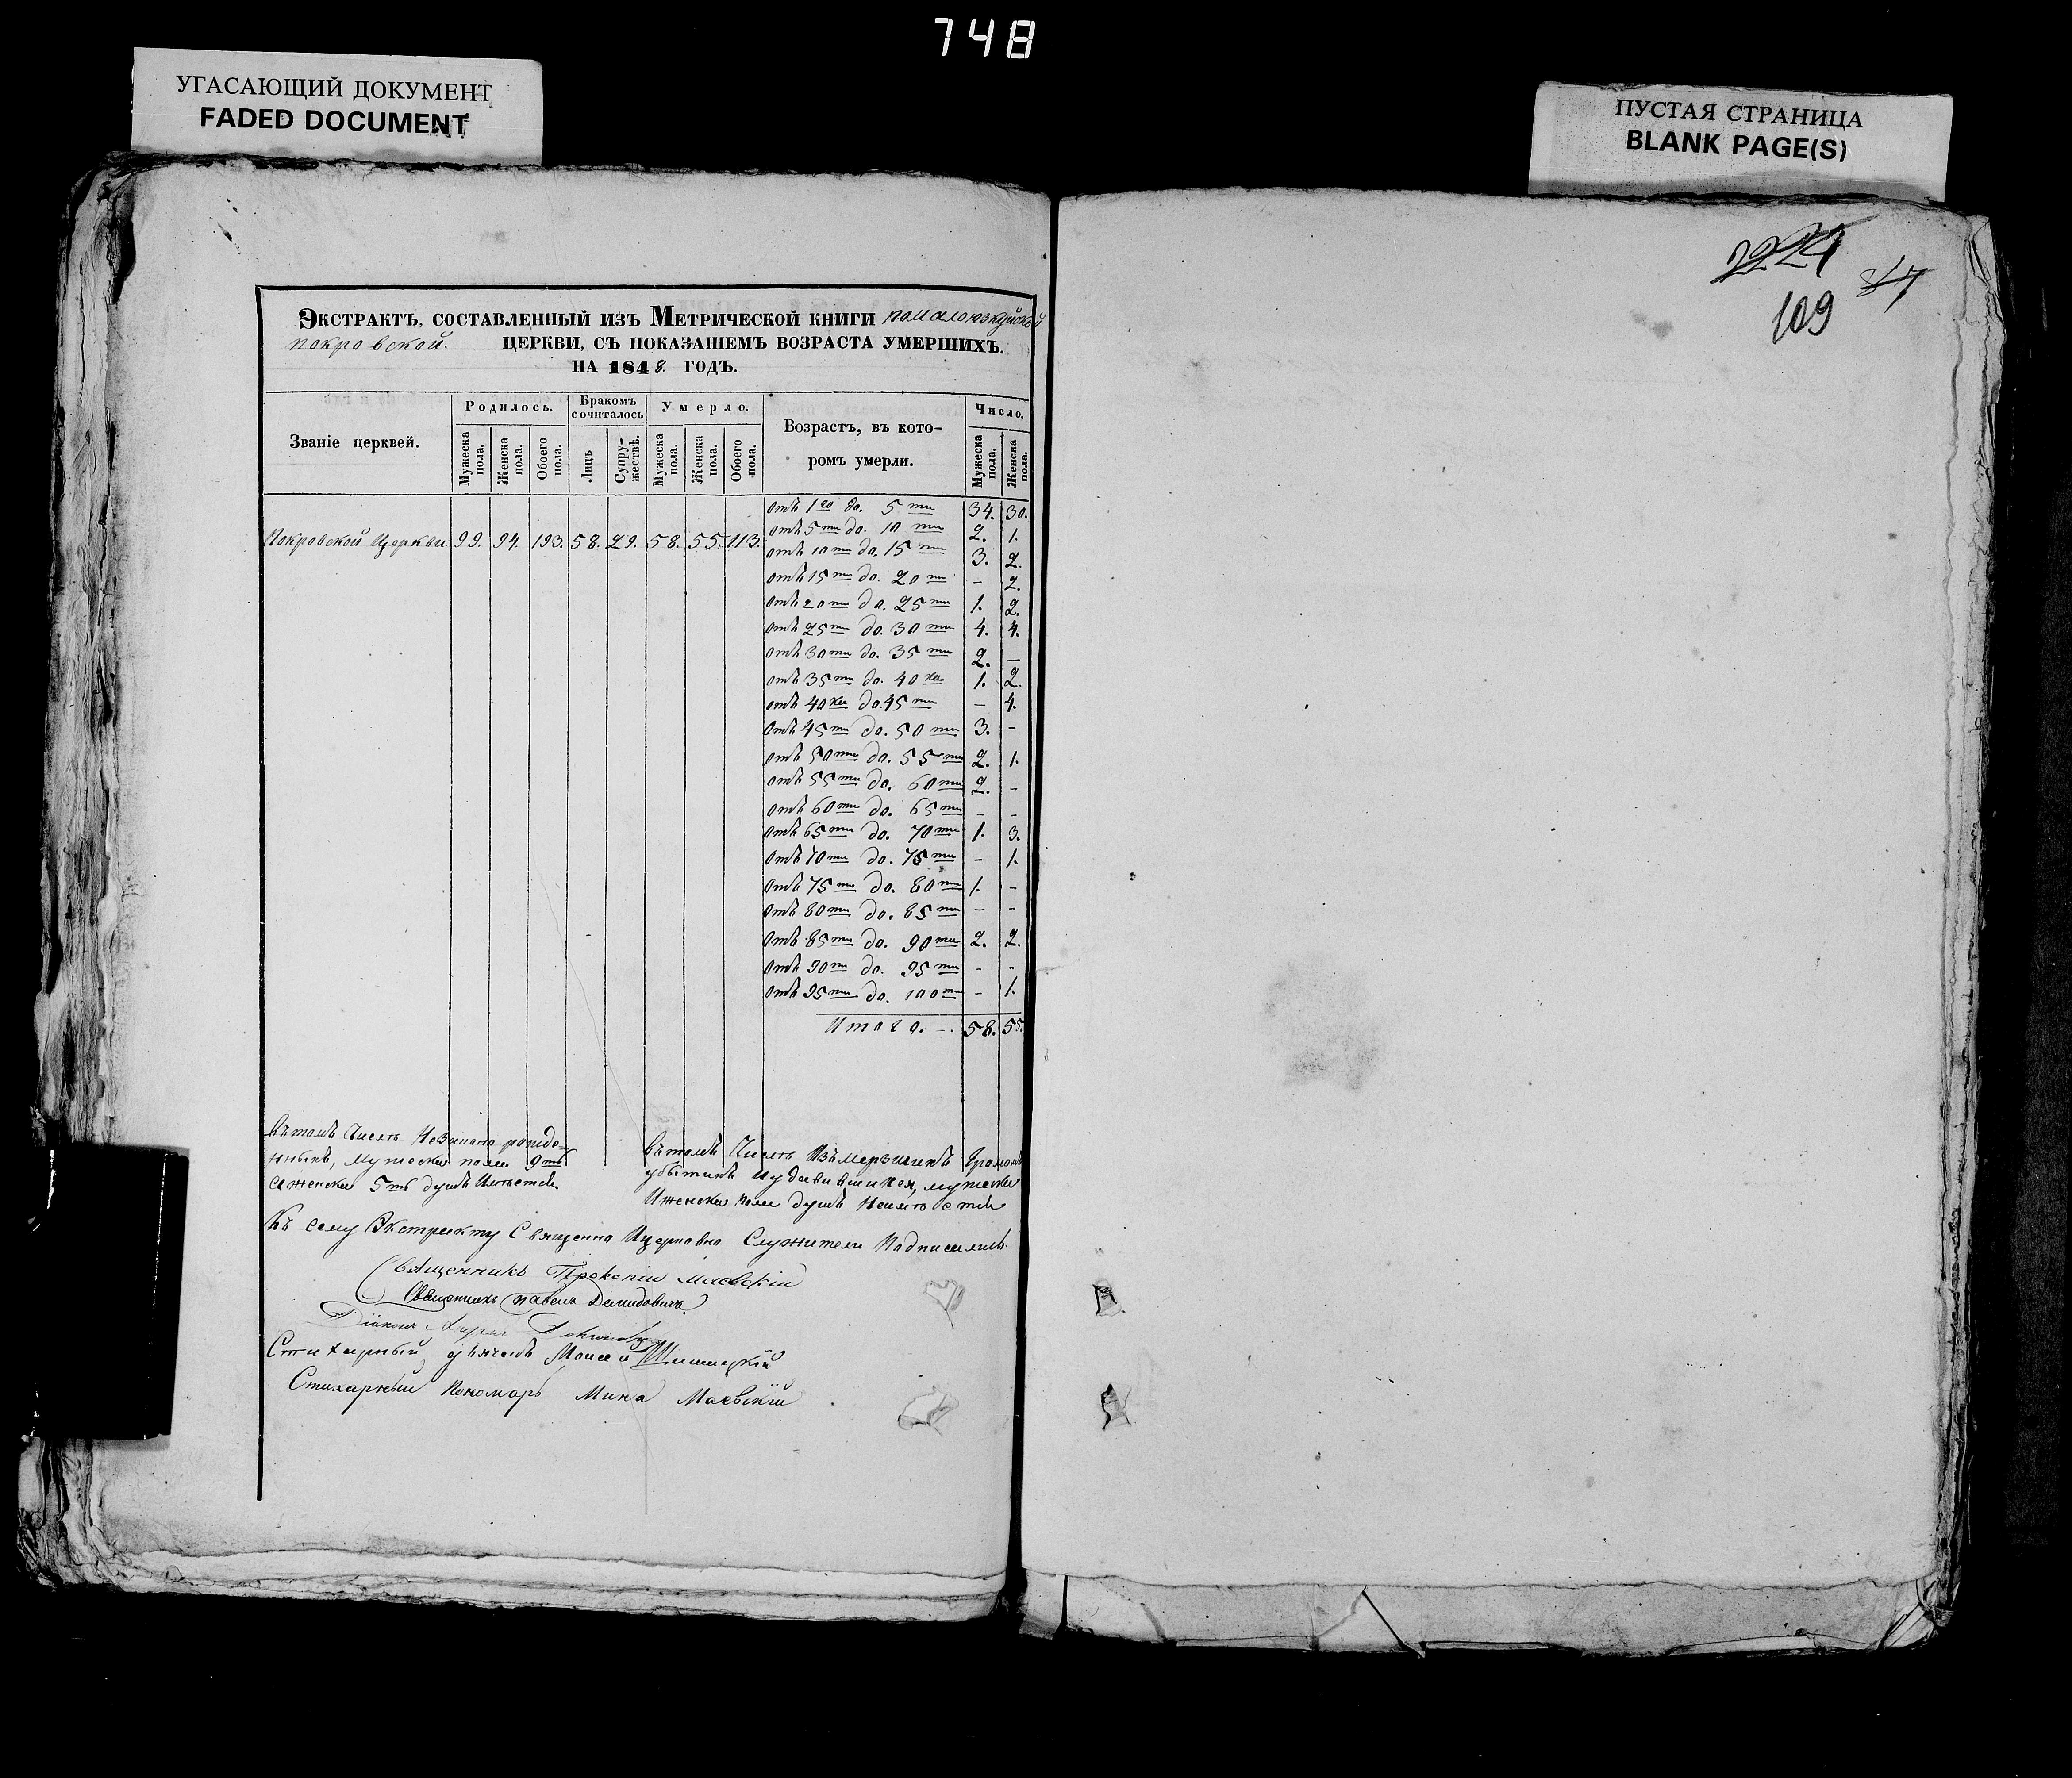 748
УГАСАЮЩИЙ ДОКУМЕНТ
FADED DOCUMENT
ПУСТАЯ СТРАНИЦА
BLANK PAGE(S)
2224
37
109
Экстрактъ, составленный изъ Метрической книги
покровской. церкви, съ показаніемъ возраста умершихъ.
на 1848. годъ.
Званіе церквей.
Родилось.
Бракомъ сочиталось
Умерло.
Возрастъ, въ которомъ умерли.
Число.
Мужеска пола.
Женска пола.
Обоего пола.
Лицъ
Супружествъ.
Мужеска пола.
Женска пола.
Обоего пола.
Мужеска пола.
Женска пола.
Покровской Церкви 99. 94. 193. 58. 29. 58. 55. 113.
отъ 1го до. 5ти 34. 30.
отъ 5ти до. 10ти 2. 1.
отъ 10ти до. 15ти 3. 2.
отъ 15ти до. 20ти - 2.
отъ 20ти до. 25ти 1. 2.
отъ 25ти до. 30ти 4. 4.
отъ 30ти до. 35ти 2. -
отъ 35ти до. 40ка 1. 2.
отъ 40ка до. 45ти - 4.
отъ 45ти до. 50ти 3. -
отъ 50ти до. 55ти 2. 1.
отъ 55ти до. 60ти 2. -
отъ 60ти до. 65ти - -
отъ 65ти до. 70ти 1. 3.
отъ 70ти до. 75ти - 1.
отъ 75ти до. 80ти 1. -
отъ 80ти до. 85ти - -
отъ 85ти до. 90ти 2. 2.
отъ 90ти до. 95ти - -
отъ 95ти до. 100ти - 1.
Итого. -. 58. 55.
въ томъ Числѣ Незаконо рожде=
нныхъ, мужеска пола 9ть
и женска 5ть душъ
въ томъ Числѣ Изъмерзшихъ Громомъ
убытихъ Иудавившихся, мужеска
Иженска пола душъ
Къ сему Экстракту Священно Ицерковно Служители Подписались.
Священникъ Маевскій
Священникъ Павелъ Демидовичъ
Діаконъ
Стихарный дьячекъ Моисей
Стихарный Пономарь Мина Маевскій